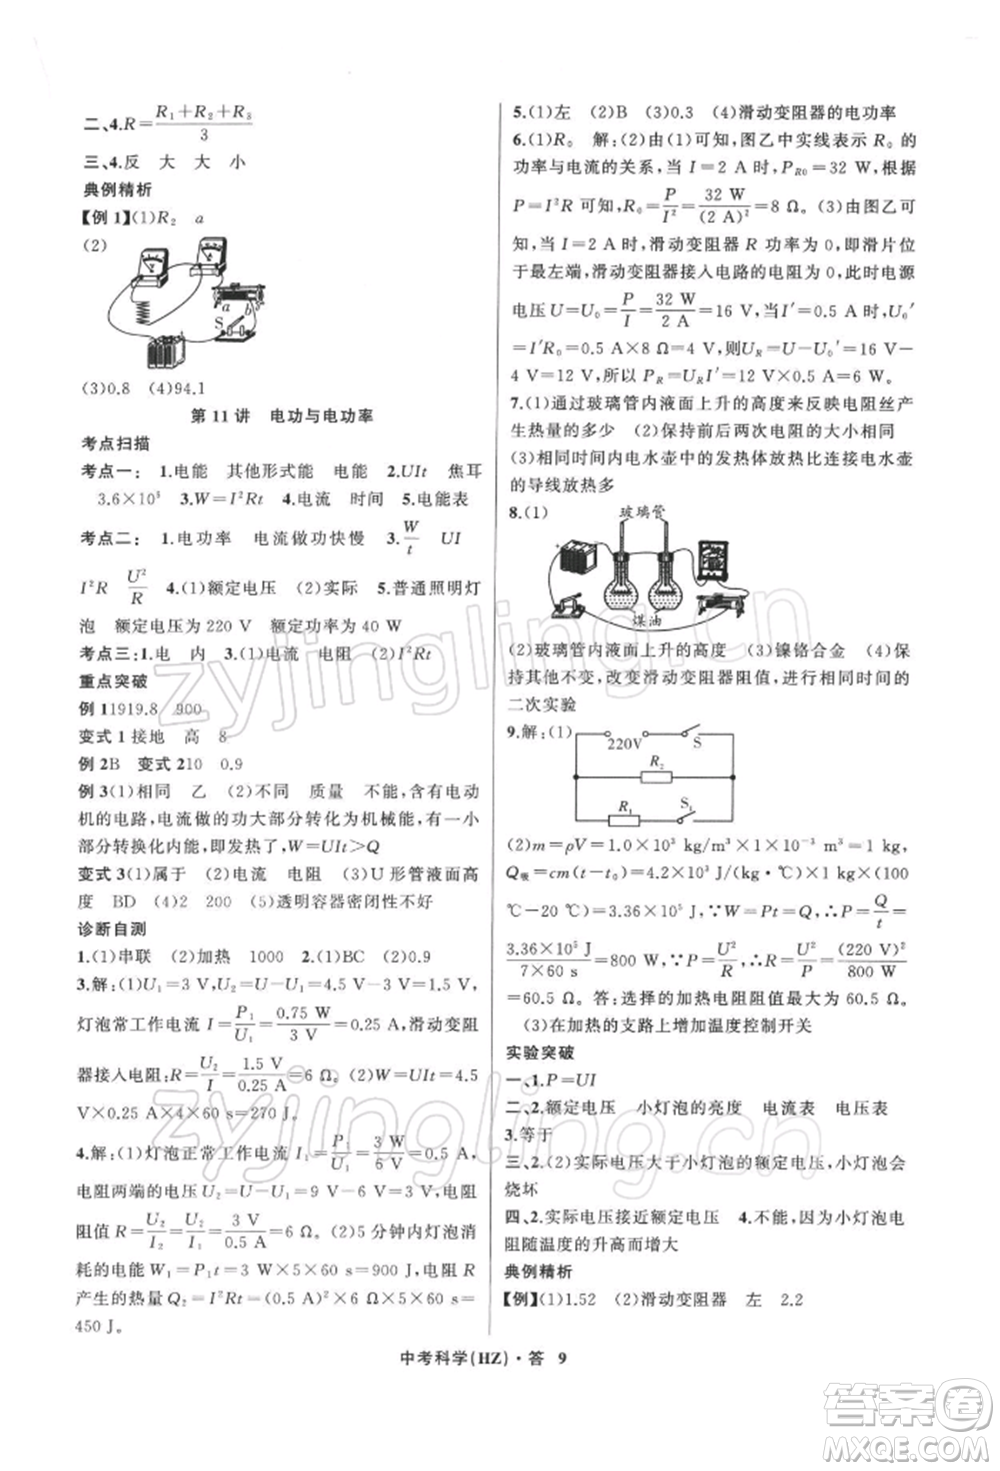 二、4.R=(R₁+R₂+R₃)/3
三、4.反 大 大 小
典例精析
【例 1】(1)R₂ a
(2)
a b
S
(3)0.8 (4)94.1
第 11 讲 电功与电功率
考点扫描
考点一：1.电能 其他形式能 电能 2.UIt 焦耳
3.6×10⁶ 3.W=I²Rt 4.电流 时间 5.电能表
考点二：1.电功率 电流做功快慢 3.W/t UI
I²R U²/R 4.(1)额定电压 (2)实际 5.普通照明灯
泡 额定电压为 220 V 额定功率为 40 W
考点三：1.电 内 3.(1)电流 电阻 (2)I²Rt
重点突破
例 11919.8 900
变式 1接地 高 8
例 2B 变式 210 0.9
例 3(1)相同 乙 (2)不同 质量 不能,含有电动
机的电路,电流做的功大部分转化为机械能,有一小
部分转换化内能,即发热了,W=UIt>Q
变式 3(1)属于 (2)电流 电阻 (3)U 形管液面高
度 BD (4)2 200 (5)透明容器密闭性不好
诊断自测
1.(1)串联 (2)加热 1000 2.(1)BC (2)0.9
3.解:(1)U₁=3 V,U₂=U-U₁=4.5 V-3 V=1.5 V,
灯泡常工作电流 I=P₁/U₁=0.75 W/3 V=0.25 A,滑动变阻
器接入电阻:R=U₂/I=1.5 V/0.25 A=6 Ω。(2)W=UIt=4.5
V×0.25 A×4×60 s=270 J。
4.解:(1)灯泡正常工作电流 I₁=P₁/U₁=3 W/6 V=0.5 A,
电阻两端的电压 U₂=U-U₁=9 V-6 V=3 V,电阻
阻值 R=U₂/I₂=U₂/I₁=3 V/0.5 A=6 Ω。(2)5 分钟内灯泡消
耗的电能 W₁=P₁t=3 W×5×60 s=900 J,电阻 R
产生的热量 Q₂=I²Rt=(0.5 A)²×6 Ω×5×60 s=
450 J。
5.(1)左 (2)B (3)0.3 (4)滑动变阻器的电功率
6.(1)R₀ 解:(2)由(1)可知,图乙中实线表示 R₀ 的
功率与电流的关系,当 I=2 A 时,P_R0=32 W,根据
P=I²R 可知,R₀=P/I²=32 W/(2 A)²=8 Ω。(3)由图乙可
知,当 I=2 A 时,滑动变阻器 R 功率为 0,即滑片位
于最左端,滑动变阻器接入电路的电阻为 0,此时电源
电压 U=U₀=P/I=32 W/2 A=16 V,当 I′=0.5 A 时,U₀′
=I′R₀=0.5 A×8 Ω=4 V,则U_R=U-U₀′=16 V-
4 V=12 V,所以 P_R=U_R I′=12 V×0.5 A=6 W。
7.(1)通过玻璃管内液面上升的高度来反映电阻丝产
生热量的多少 (2)保持前后两次电阻的大小相同
(3)相同时间内电水壶中的发热体放热比连接电水壶
的导线放热多
8.(1)
玻璃管
煤油
(2)玻璃管内液面上升的高度 (3)镍铬合金 (4)保
持其他不变,改变滑动变阻器阻值,进行相同时间的
二次实验
9.解:(1)
220V S
R₂
R₁ S₁
(2)m=ρV=1.0×10³ kg/m³×1×10⁻³ m³=1 kg,
Q吸=cm(t-t₀)=4.2×10³ J/(kg·℃)×1 kg×(100
℃-20 ℃)=3.36×10⁵ J,∵W=Pt=Q,∴P=Q/t=
3.36×10⁵ J/7×60 s=800 W,∵P=U²/R,∴R=U²/P=(220 V)²/800 W
=60.5 Ω。答:选择的加热电阻阻值为 60.5 Ω。
(3)在加热的支路上增加温度控制开关
实验突破
一、1.P=UI
二、2.额定电压 小灯泡的亮度 电流表 电压表
3.等于
三、2.(2)实际电压大于小灯泡的额定电压,小灯泡会
烧坏
四、2.实际电压接近额定电压 4.不能,因为小灯泡电
阻随温度的升高而增大
典例精析
【例】(1)1.52 (2)滑动变阻器 左 2.2
中考科学(HZ)·答 9
zyjingling.cn
zyjingling.cn
答案圈
MXQE.COM